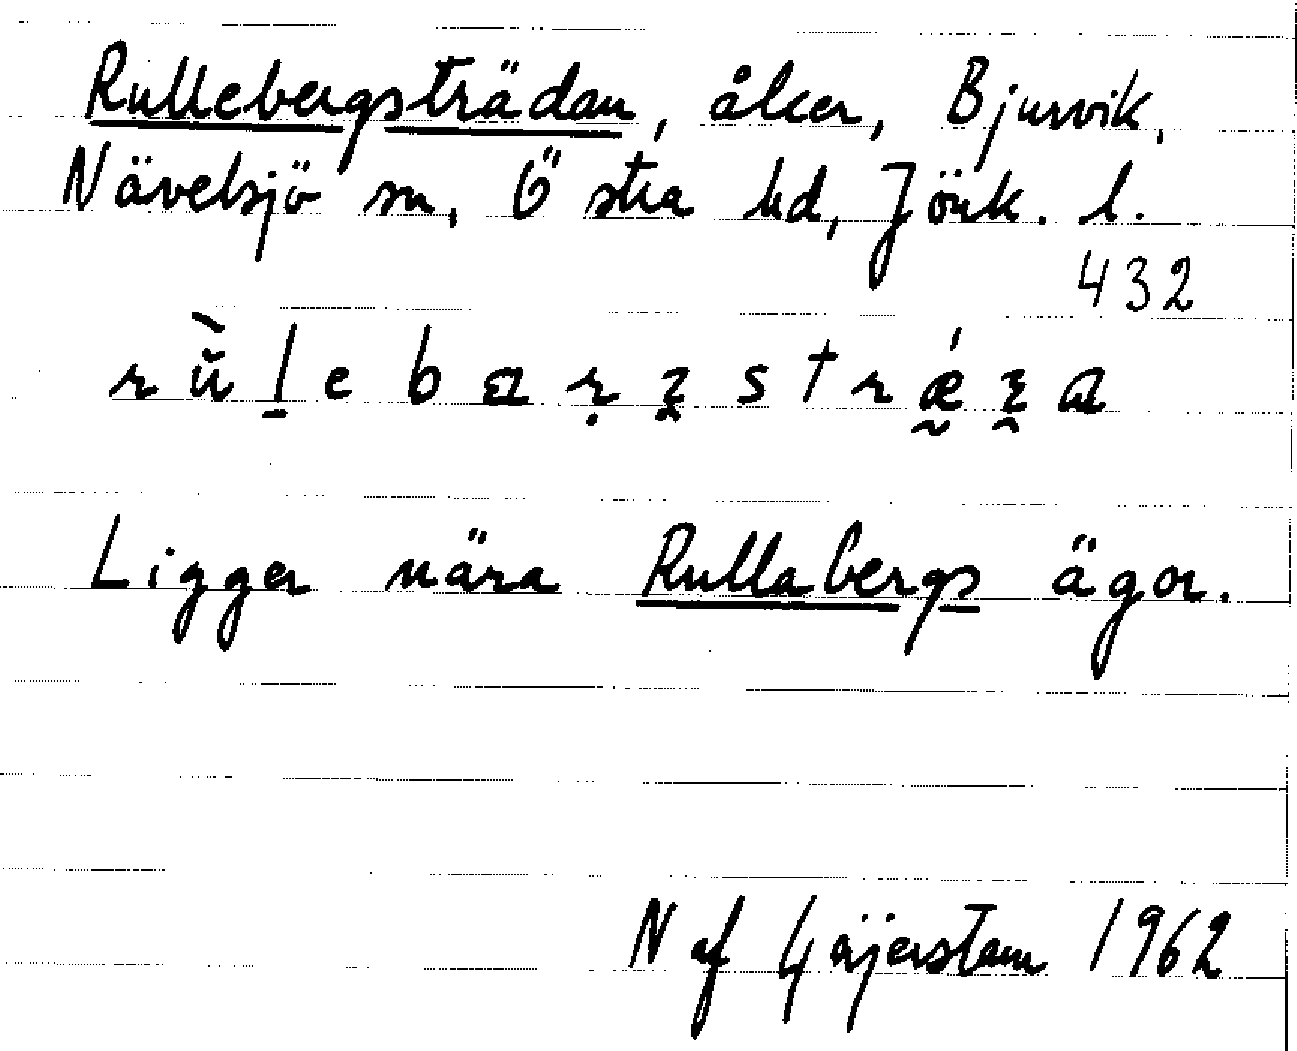 Rullebergsträdan, åker, Bjurvik,
Nävelsjö sn, Östra hd, Jönk. l.
432
Ligger nära Rullabergs ägor.
N af Gäijerstam 1962